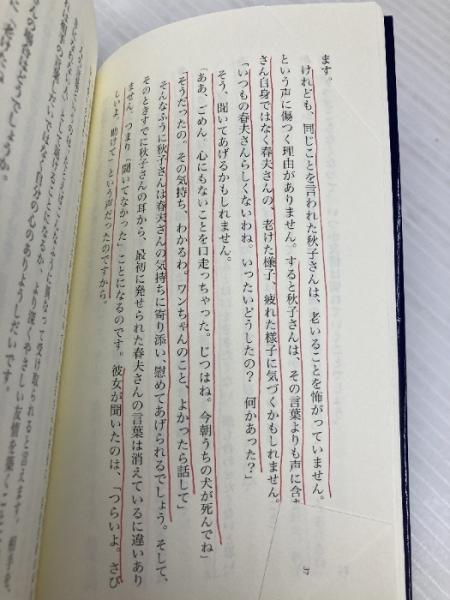 ます。
けれども、同じことを言われた秋子さんは、老いることを怖がっていません。
という声に傷つく理由がありません。すると秋子さんは、その言葉よりも声に含ま
さん自身ではなく春夫さんの、老けた様子、疲れた様子に気づくかもしれません。
「いつもの春夫さんらしくないわね。いったいどうしたの？ 何かあった？」
そう、聞いてあげるかもしれません。
「ああ、ごめん。心にもないことを口走っちゃった。じつはね。今朝うちの犬が死んでね」
「そうだったの。その気持ち、わかるわ。ワンちゃんのこと、よかったら話して」
そんなふうに秋子さんは春夫さんの気持ちに寄り添い、慰めてあげられるでしょう。そして、
そのときすでに秋子さんの耳から、最初に発せられた春夫さんの言葉は消えているに違いあり
ません。つまり「聞いてなかった」ことになるのです。彼女が聞いたのは、「つらいよ。さび
しいよ。助けて」という声だったのですから。
37